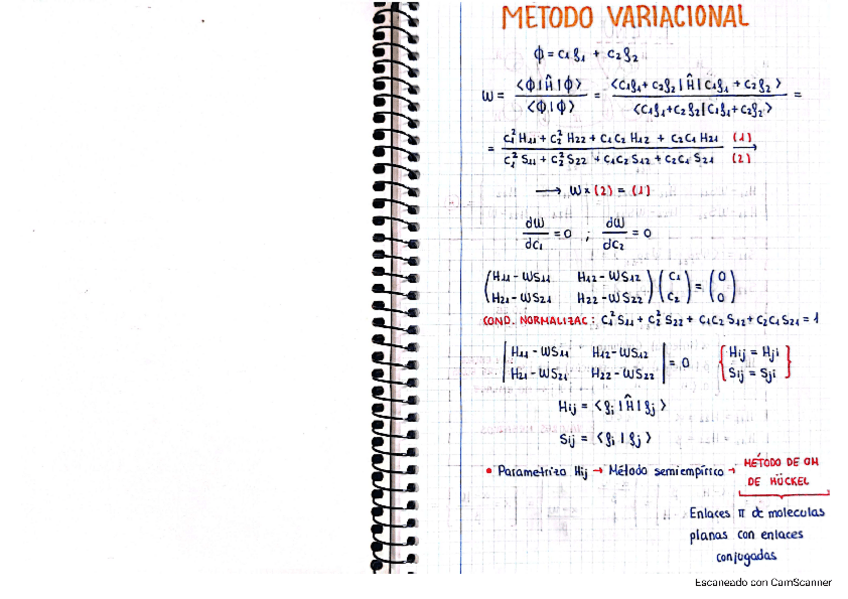 METODO VARIACIONAL
ϕ = c₁ϱ₁ + c₂ϱ₂
W = <ϕ|Ĥ|ϕ> / <ϕ|ϕ> = <c₁ϱ₁ + c₂ϱ₂|Ĥ|c₁ϱ₁ + c₂ϱ₂> / <c₁ϱ₁ + c₂ϱ₂|c₁ϱ₁ + c₂ϱ₂> =
= c₁² H₁₁ + c₂² H₂₂ + c₁c₂ H₁₂ + c₂c₁ H₂₁ (1) / c₁² S₁₁ + c₂² S₂₂ + c₁c₂ S₁₂ + c₂c₁ S₂₁ (2) →
→ W × (2) = (1)
dW/dc₁ = 0 ; dW/dc₂ = 0
(H₁₁ - WS₁₁ H₁₂ - WS₁₂) (c₁) = (0)
(H₂₁ - WS₂₁ H₂₂ - WS₂₂) (c₂) (0)
COND. NORMALIZAC: c₁² S₁₁ + c₂² S₂₂ + c₁c₂ S₁₂ + c₂c₁ S₂₁ = 1
|H₁₁ - WS₁₁ H₁₂ - WS₁₂| = 0 {Hij = Hji}
|H₂₁ - WS₂₁ H₂₂ - WS₂₂| {Sij = Sji}
Hij = <ϱi|Ĥ|ϱj>
Sij = <ϱi|ϱj>
• Parametriza Hij → Método semiempírico → MÉTODO DE OM
DE HÜCKEL
Enlaces π de moleculas
planas con enlaces
conjugadas
Escaneado con CamScanner